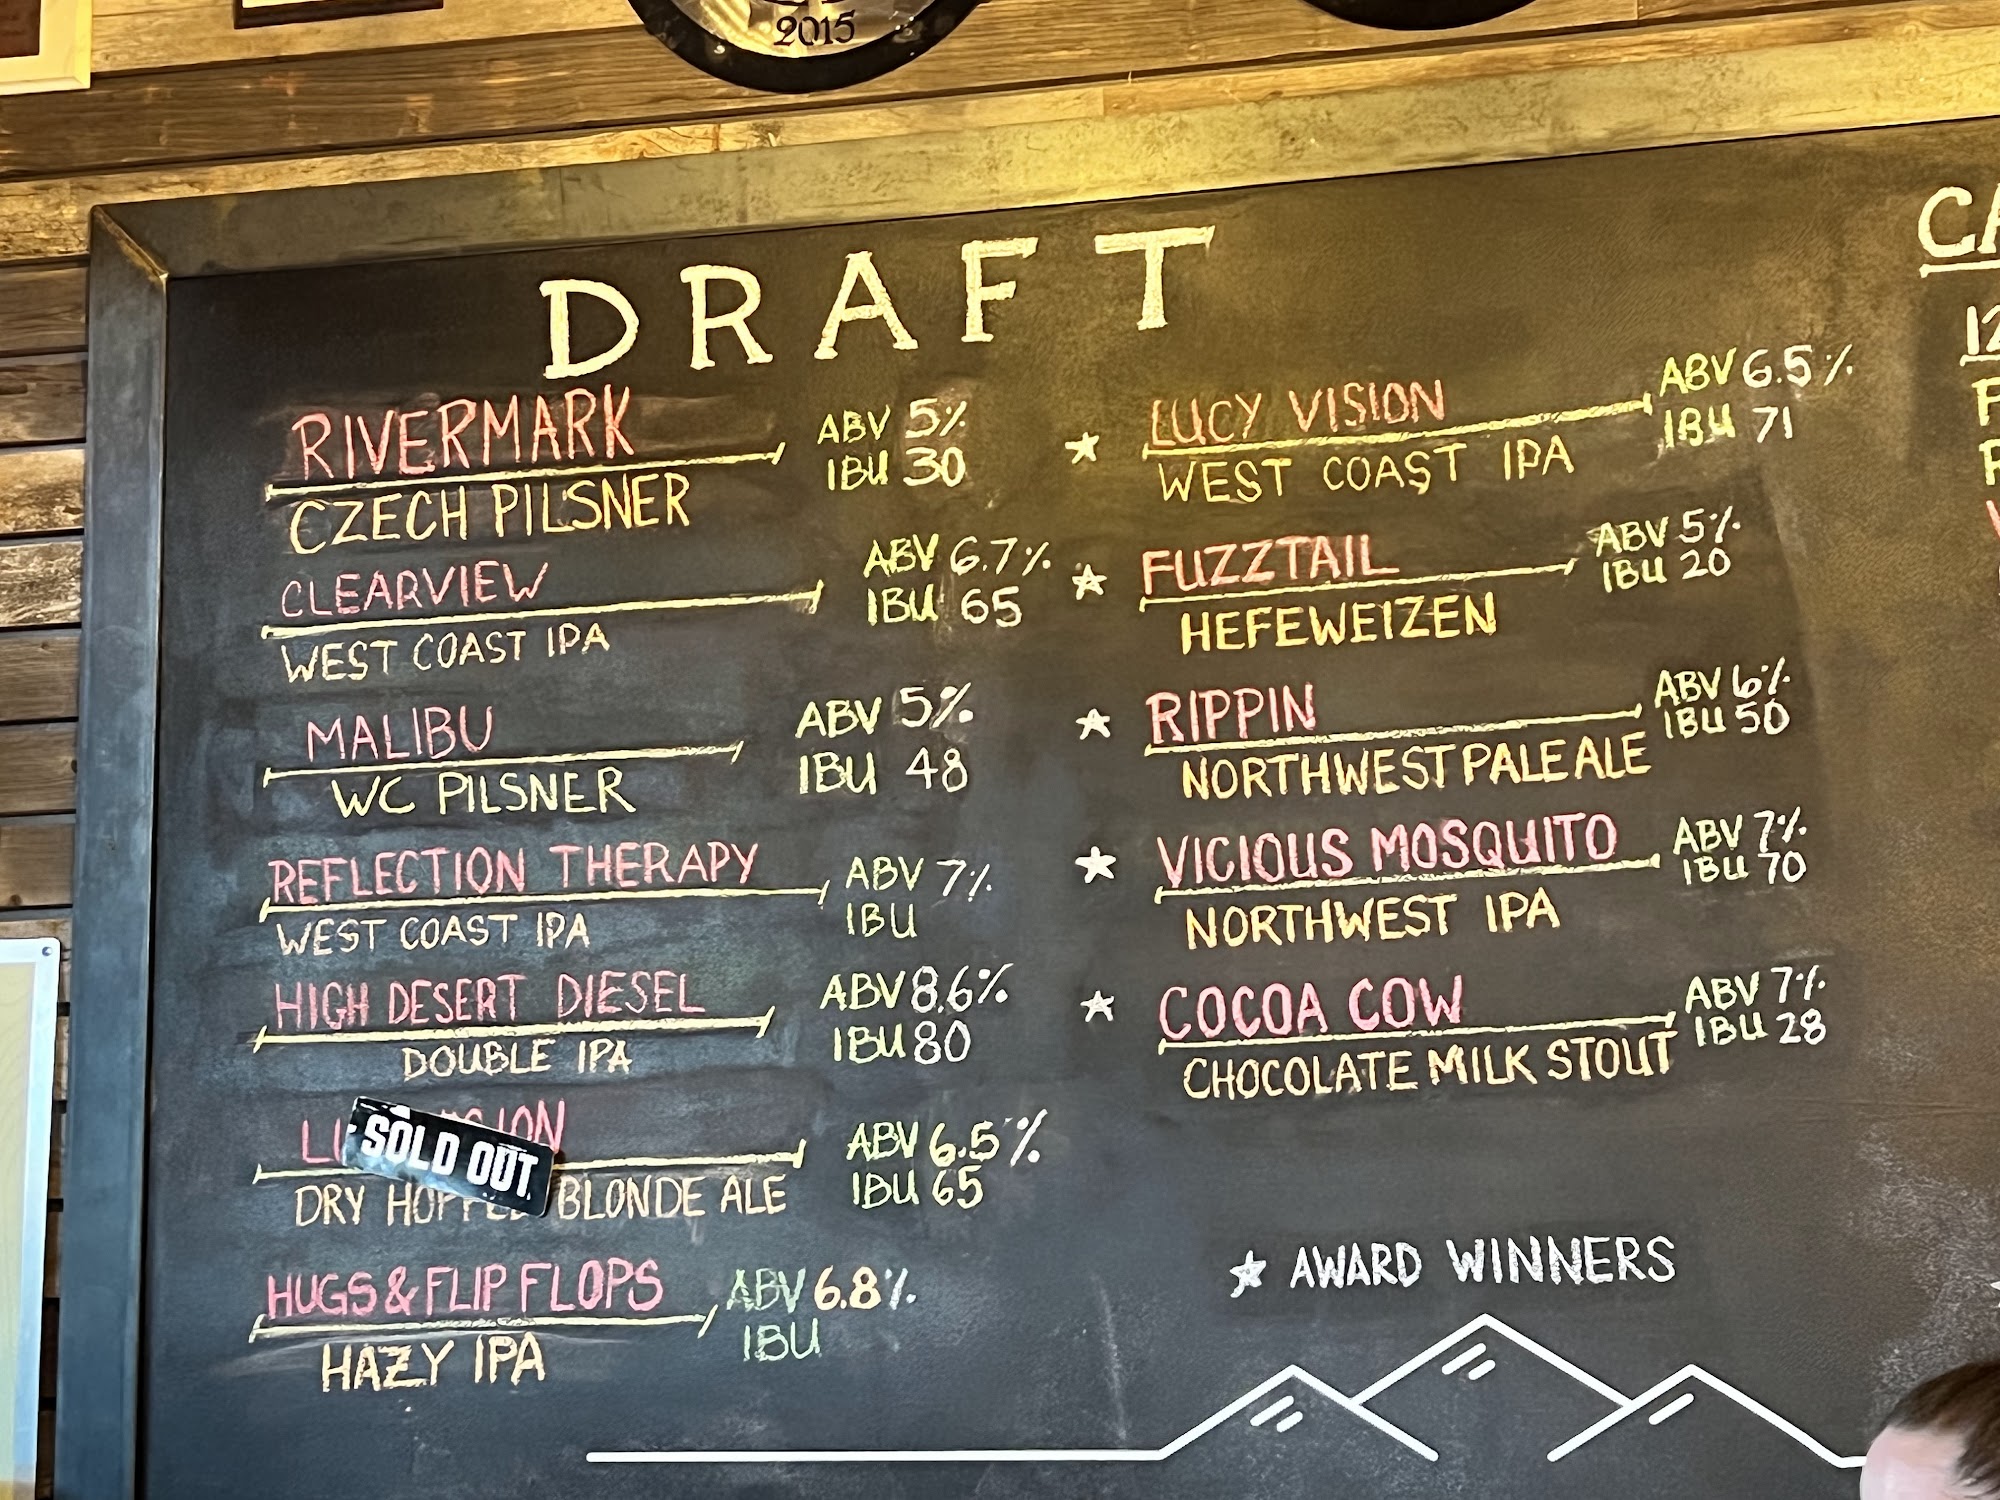 2015
DRAFT
RIVERMARK
ABV 5%
IBU 30
CZECH PILSNER
CLEARVIEW
ABV 6.7%
IBU 65
WEST COAST IPA
MALIBU
ABV 5%
IBU 48
WC PILSNER
REFLECTION THERAPY
ABV 7%
IBU
WEST COAST IPA
HIGH DESERT DIESEL
ABV 8.6%
IBU 80
DOUBLE IPA
SOLD OUT
ABV 6.5%
IBU 65
DRY HOPPED BLONDE ALE
HUGS & FLIP FLOPS
ABV 6.8%
IBU
HAZY IPA
★ LUCY VISION
ABV 6.5%
IBU 71
WEST COAST IPA
★ FUZZTAIL
ABV 5%
IBU 20
HEFEWEIZEN
★ RIPPIN
ABV 6%
IBU 50
NORTHWEST PALE ALE
★ VICIOUS MOSQUITO
ABV 7%
IBU 70
NORTHWEST IPA
★ COCOA COW
ABV 7%
IBU 28
CHOCOLATE MILK STOUT
★ AWARD WINNERS
CA
12